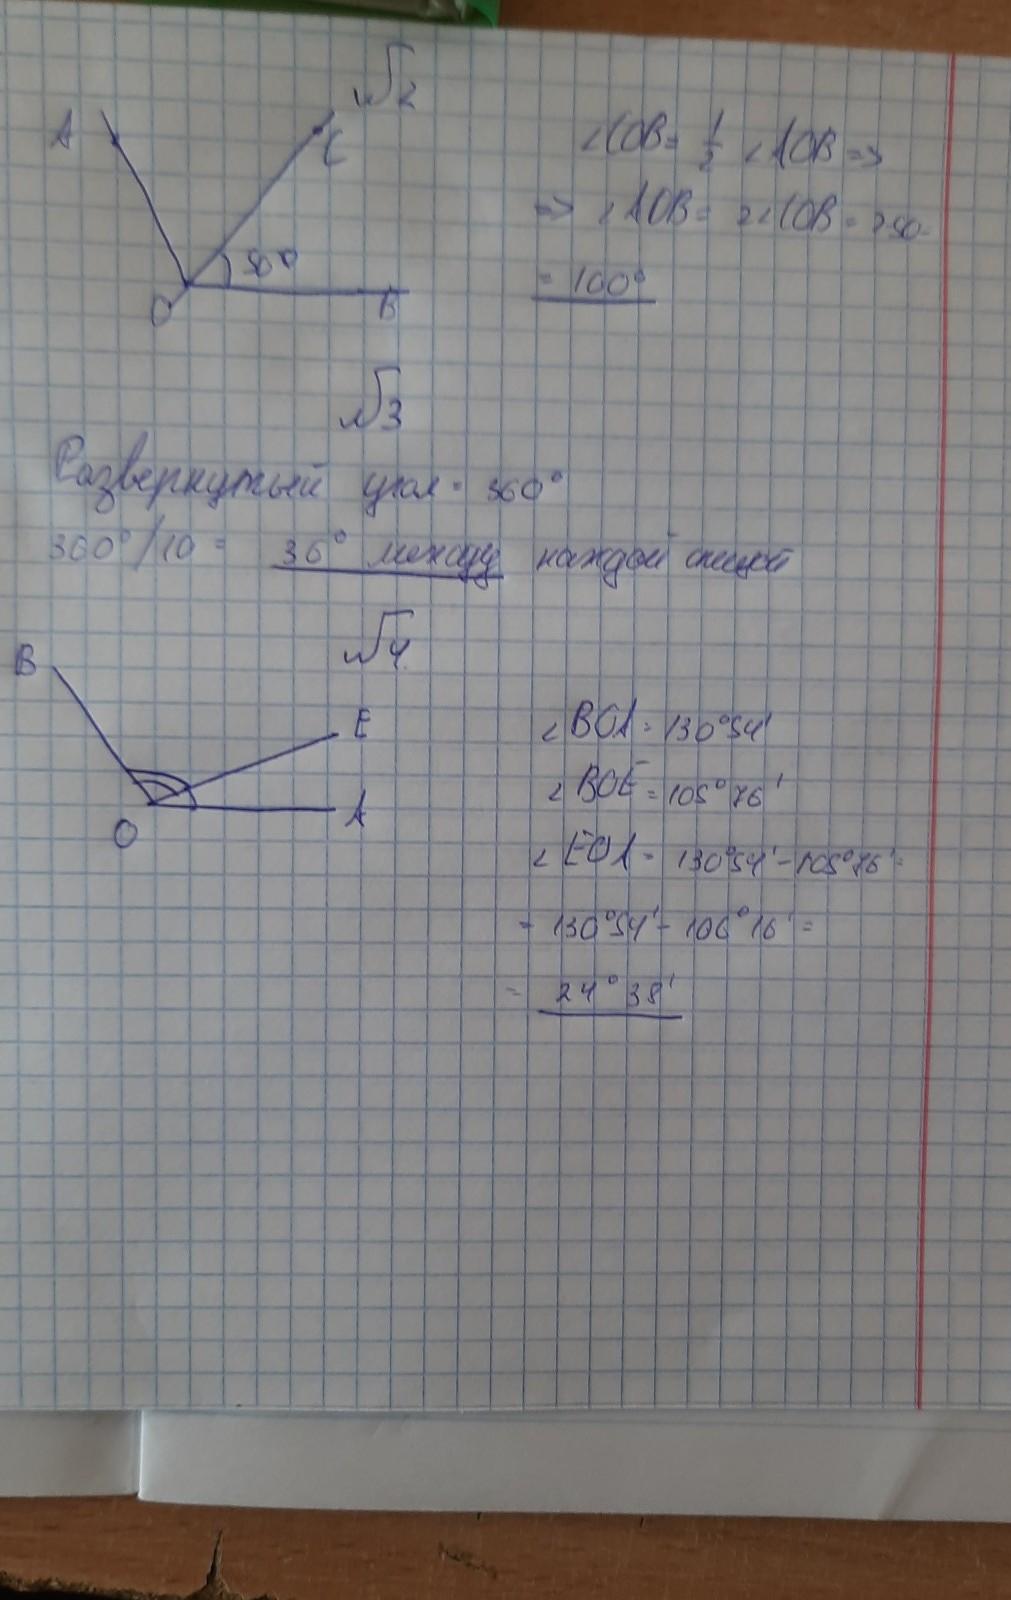 √2
A
C
∠COB = 1/2 ∠AOB =>
=> ∠AOB = 2∠COB = 2·50=
50°
= 100°
O
B
√3
Развернутый угол = 360°
360°/10 = 36° между каждой спицой
√4
B
E
∠BOA = 130°54'
∠BOE = 105°76'
O
A
∠EOA = 130°54' - 105°76' =
= 130°54' - 106°16' =
= 24°38'